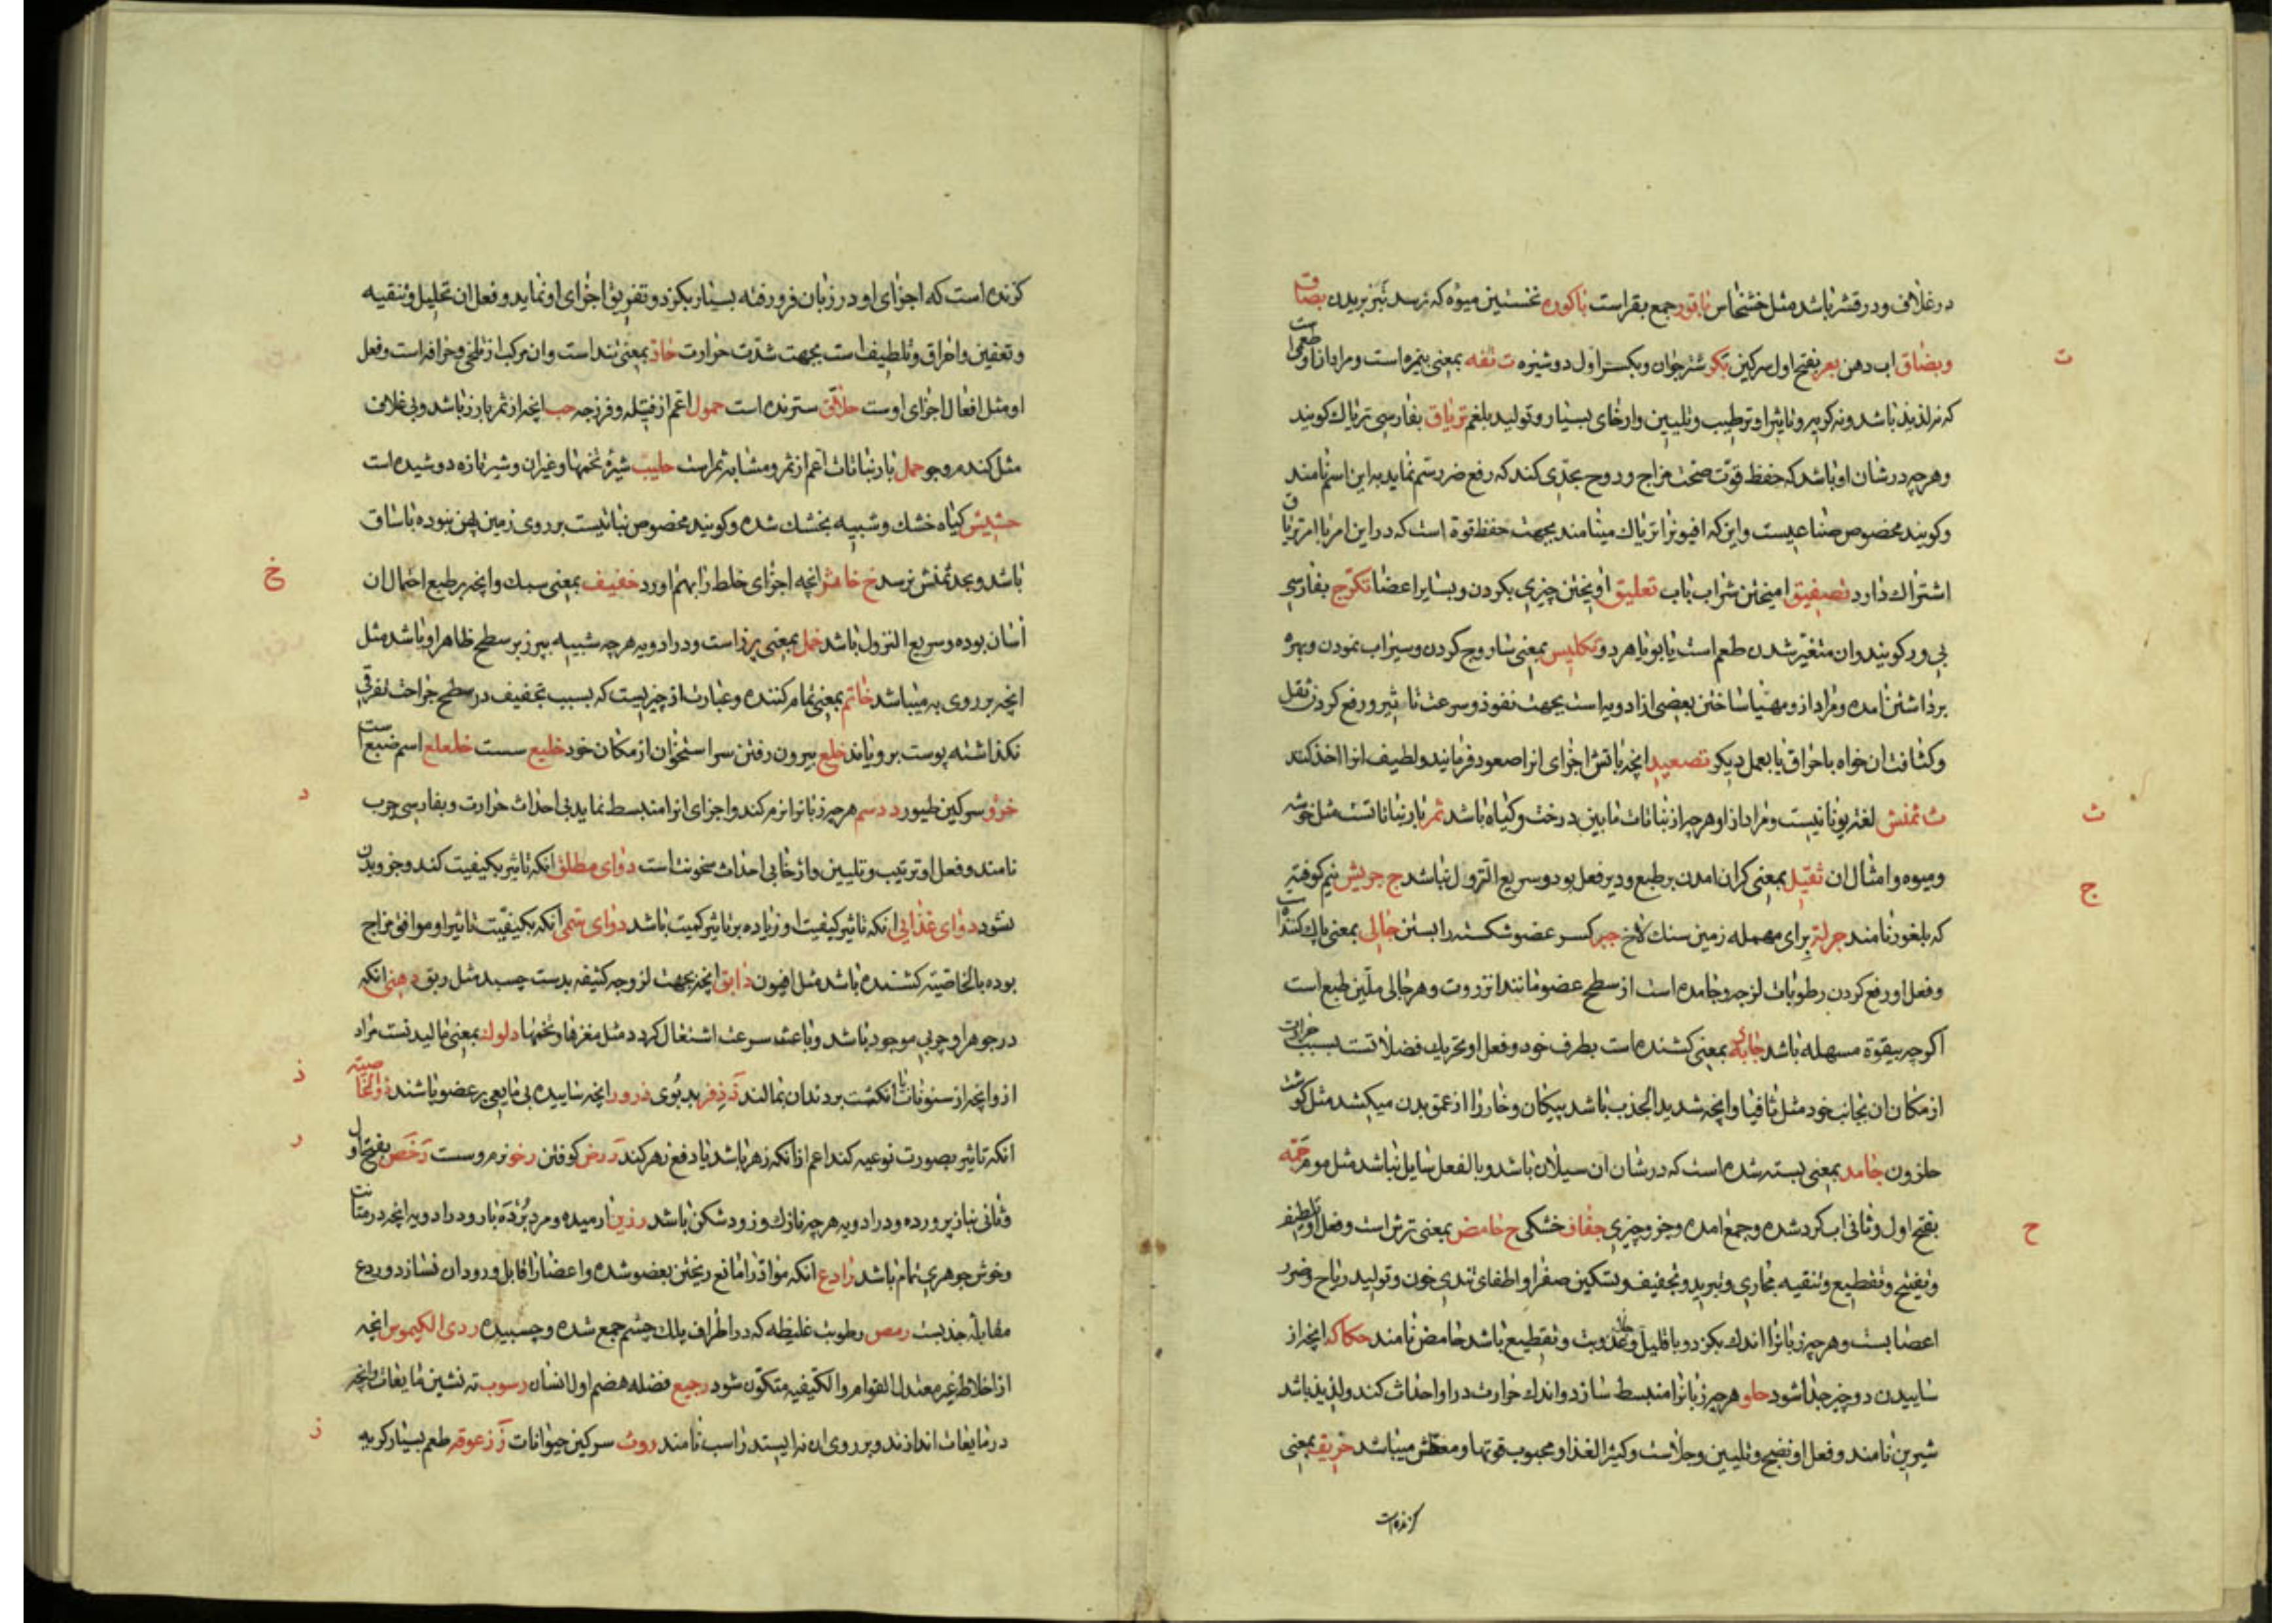 در غلاف و در قشر باشد مثل خشخاش باقور جمع بقر است باکوره نخستین میوه که برسد بزبریدن بصاق
ت
وبضاق اب دهن بعر بفتح اول سرکین بکر شتر جوان و بکسر اول دوشیزه ت تفه بمعنی بیمزه است و مراد ازاو طعمی است
که نه لذیذ باشد و نه کریه و تاثیر او ترطیب و تلیین و ارخای بسیار و تولید بلغم تریاق بفارسی تریاک کویند
و هرچه در شان او باشد که حفظ قوّت صحّت مزاج و روح بحدّی کند که رفع ضرر سم نماید به این اسم نامند
و کویند مخصوص صناعیست و این که افیونرا تریاک مینامند بجهت حفظ قوة است که در این امر با امر تریاق
اشتراک دارد تصفیق امیختن شراب باب تعلیق اویختن چیزی بکردن و بسایر اعضا تکرّج بفارسی
بی ور کویند و ان متغیّر شدن طعم است یا بو یا هردو تکلیس بمعنی ساروج کردن و سیراب نمودن و بهره
برداشتن امده و مراد از و مهیّا ساختن بعضی از ادویه است بجهت نفوذ و سرعت تاثیر و رفع کردن ثقل
و کثافت ان خواه باحراق یا بعمل دیکر تصعید انچه باتش اجزای انرا صعود فرمایند و لطیف انرا اخذ کنند
ث
ث ثمنش لغت یونانیست و مراد از او هرچه از نباتات مابین درخت و کیاه باشد ثمر بار نباتاتست مثل خوشه
ج
و میوه و امثال ان ثقیل بمعنی کران امدن بر طبع و دیر فعل بود و سریع النزول نباشد ج جریش نیم کوفته
که بلغور نامند جرلة برای مهمله زمین سنک لاخ جبر کسر عضو شکسته را بستن جالی بمعنی پاک کننده است
و فعل او رفع کردن رطوبات لزجه و جامده است از سطح عضو مانند انزروت و هر جالی ملیّن طبع است
اکرچه بیقوة مسهله باشد جاذبه بمعنی کشنده است بطرف خود و فعل او تحریک فضلاتست بسبب حرارت
از مکان ان بجانب خود مثل ثافیا و انچه شدید الجذب باشد پیکان و خار را از عمق بدن میکشد مثل کوشت
حلزون جامد بمعنی بسته شده است که در شان ان سیلان باشد و بالفعل سایل نباشد مثل موم جمّه
ح
بفتح اول و ثانی اب کرد شده و جمع امده و جزو چیزی جفاف خشکی ح حامض بمعنی ترش است و فعل او تلطیف
و تفتیح و تقطیع و تنقیه مجاری و تبرید و تجفیف و تسکین صفرا و اطفای تندی خون و تولید ریاح و ضرر
اعصابست و هرچه زبانرا اندک بکزد و با قلیل جلا و عذوبت و تقطیع باشد حامض نامند حکاکه انچه از
ساییدن دو چیز جدا شود حلو هرچه زبانرا منبسط سازد و اندک حرارت در او احداث کند و لذیذ باشد
شیرین نامند و فعل او نضج و تلیین و جلاست و کثیر الغذا و محبوب قوتها و معطش میباشد حریف بمعنی
کزنده است
کزنده است که اجزای او در زبان فرو رفته بسیار بکزد و تفریق اجزای او نماید و فعل ان تحلیل و تنقیه
و تعفین و احراق و تلطیف است بجهت شدّت حرارت حادّ بمعنی تند است و ان مرکب از تلخی و حرافه است و فعل
او مثل افعال اجزای اوست حلاّق سترنده است حمول اعم از فتیله و فرزجه حب انچه از ثمر بارز باشد و بی غلاف
مثل کندم و جو حمل بار نباتات اعم از ثمر و مشابه ثمر است حلیب شیرهٔ تخمها و غیر ان و شیر تازه دوشیده است
حشیش کیاه خشک و شبیه بخشک شده و کویند مخصوص نباتیست بر روی زمین پهن نبوده با ساق
خ
باشد و بحد ثمنش نرسد خ خاثر انچه اجزای خلط را بهم اورد خفیف بمعنی سبک و انچه بر طبع احتمال ان
اسان بوده و سریع النزول باشد خمل بمعنی پرز است و در ادویه هرچه شبیه بپرز بر سطح ظاهر او باشد مثل
انچه بر روی به میباشد خاتم بمعنی تمام کننده و عبارت از چیزیست که بسبب تجفیف در سطح جراحت تفرقی
نکذاشته پوست برویاند خلع بیرون رفتن سر استخوان از مکان خود خلیع سست خلعلع اسم ضبع است
د
خرؤ سرکین طیور د دسم هرچه زبانرا نرم کند و اجزای انرا منبسط نماید بی احداث حرارت و بفارسی چرب
نامند و فعل او ترتیب و تلیین و ارخا بی احداث سخونت است دوای مطلق انکه تاثیر بکیفیت کند و جزو بدن
نشود دوای غذائی انکه تاثیر کیفیت او زیاده بر تاثیر کمیت باشد دوای سمی انکه بکیفیّت تاثیر او موافق مزاج
بوده بالخاصّیته کشنده باشد مثل افیون دابق انچه بجهت لزوجه کثیفه بدست چسبد مثل ربق دهنی انکه
در جوهر او چربی موجود باشد و باعث سرعت اشتعال کردد مثل مغزها و تخمها دلوک بمعنی مالیدنست مراد
ذ
از و انچه از سنونات با انکشت بر دندان بمالند ذ ذفر بد بوی ذرور انچه ساییده بی مایعی بر عضو پاشند ذوالخاصیته
ر
انکه تاثیر بصورت نوعیه کند اعم از انکه زهر باشد یا دفع زهر کند ر رض کوفتن رخو نرم و سست رخص بفتح اول
و ثانی بناز پرورده و در ادویه هرچه نازک و زود شکن باشد رزین ارمیده و مرد بردبار و در ادویه انچه در متانت
و خوش جوهری تمام باشد رادع انکه مواد را مانع ریختن بعضو شده و اعضا را قابل ورود ان نسازد و ردع
مقابله جذبست رمص رطوبت غلیظه که در اطراف پلک چشم جمع شده و چسبیده ردی الکیموس انچه
از اخلاط غیر معتدل القوام و الکیفیه متکوّن شود رجیع فضله هضم اول انسان رسوب ته نشین مایعات و انچه
ز
در مایعات اندازند و بر روی ان نه ایستد راسب نامند روث سرکین حیوانات ز زعوقه طعم بسیار کریه